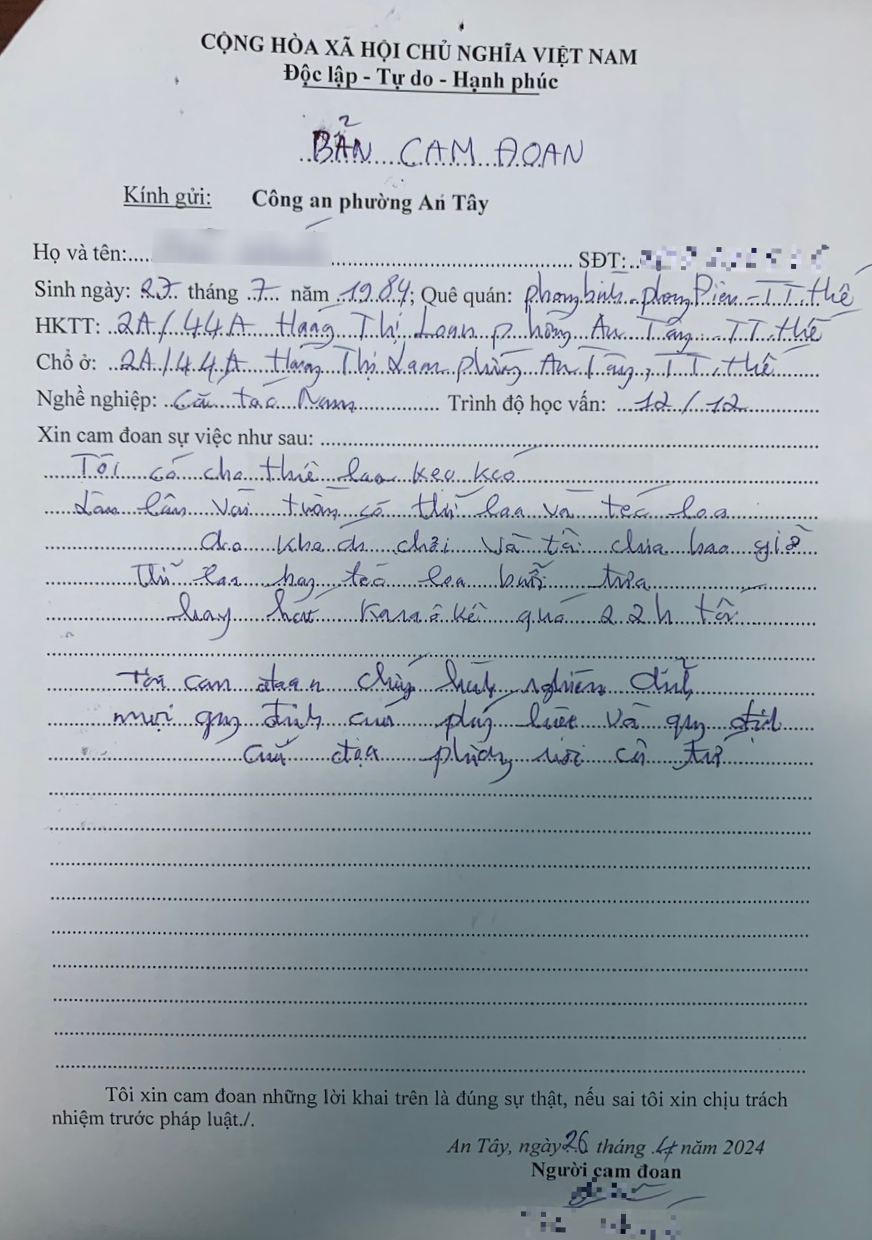 CỘNG HÒA XÃ HỘI CHỦ NGHĨA VIỆT NAM
Độc lập - Tự do - Hạnh phúc
BẢN CAM ĐOAN
Kính gửi: Công an phường An Tây
Họ và tên: SĐT:
Sinh ngày: 27 tháng 7 năm 1984; Quê quán: phong bình - phong Điền - TT Huế
HKTT: 2A/44A Hoàng Thị Loan An TT Huế
Chổ ở: 2A/44A Hoàng Thị Loan An TT Huế
Nghề nghiệp: Trình độ học vấn: 12/12
Xin cam đoan sự việc như sau:
Tôi có cho thuê loa kẹo kéo
Lâu lâu vài tuần có thử loa và test loa
do khách và tôi chưa bao giờ
Thử loa hay test loa buổi trưa
hay hát Karaôkê quá 22h tối
Tôi cam đoan chấp hành nghiêm chỉnh
mọi quy định của pháp luật và quy định
của địa phương nơi cư trú
Tôi xin cam đoan những lời khai trên là đúng sự thật, nếu sai tôi xin chịu trách
nhiệm trước pháp luật./.
An Tây, ngày 26 tháng 4 năm 2024
Người cam đoan